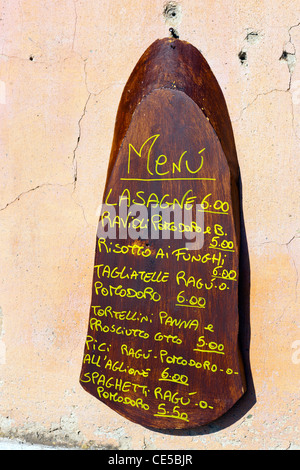 Menú
LASAGNE 6.00
RAVIOLI POMODORO e B.
5.00
RISOTTO AI FUNGHI
6.00
TAGLIATELLE RAGÚ-O-
POMODORO 6.00
TORTELLINI PANNA e
PROSCIUTTO COTTO 5.00
PICI RAGÚ-POMODORO-O-
ALL'AGLIONE 6.00
SPAGHETTI RAGÚ-O-
POMODORO 5.50
alamy
www.alamy.com
CE5BJR